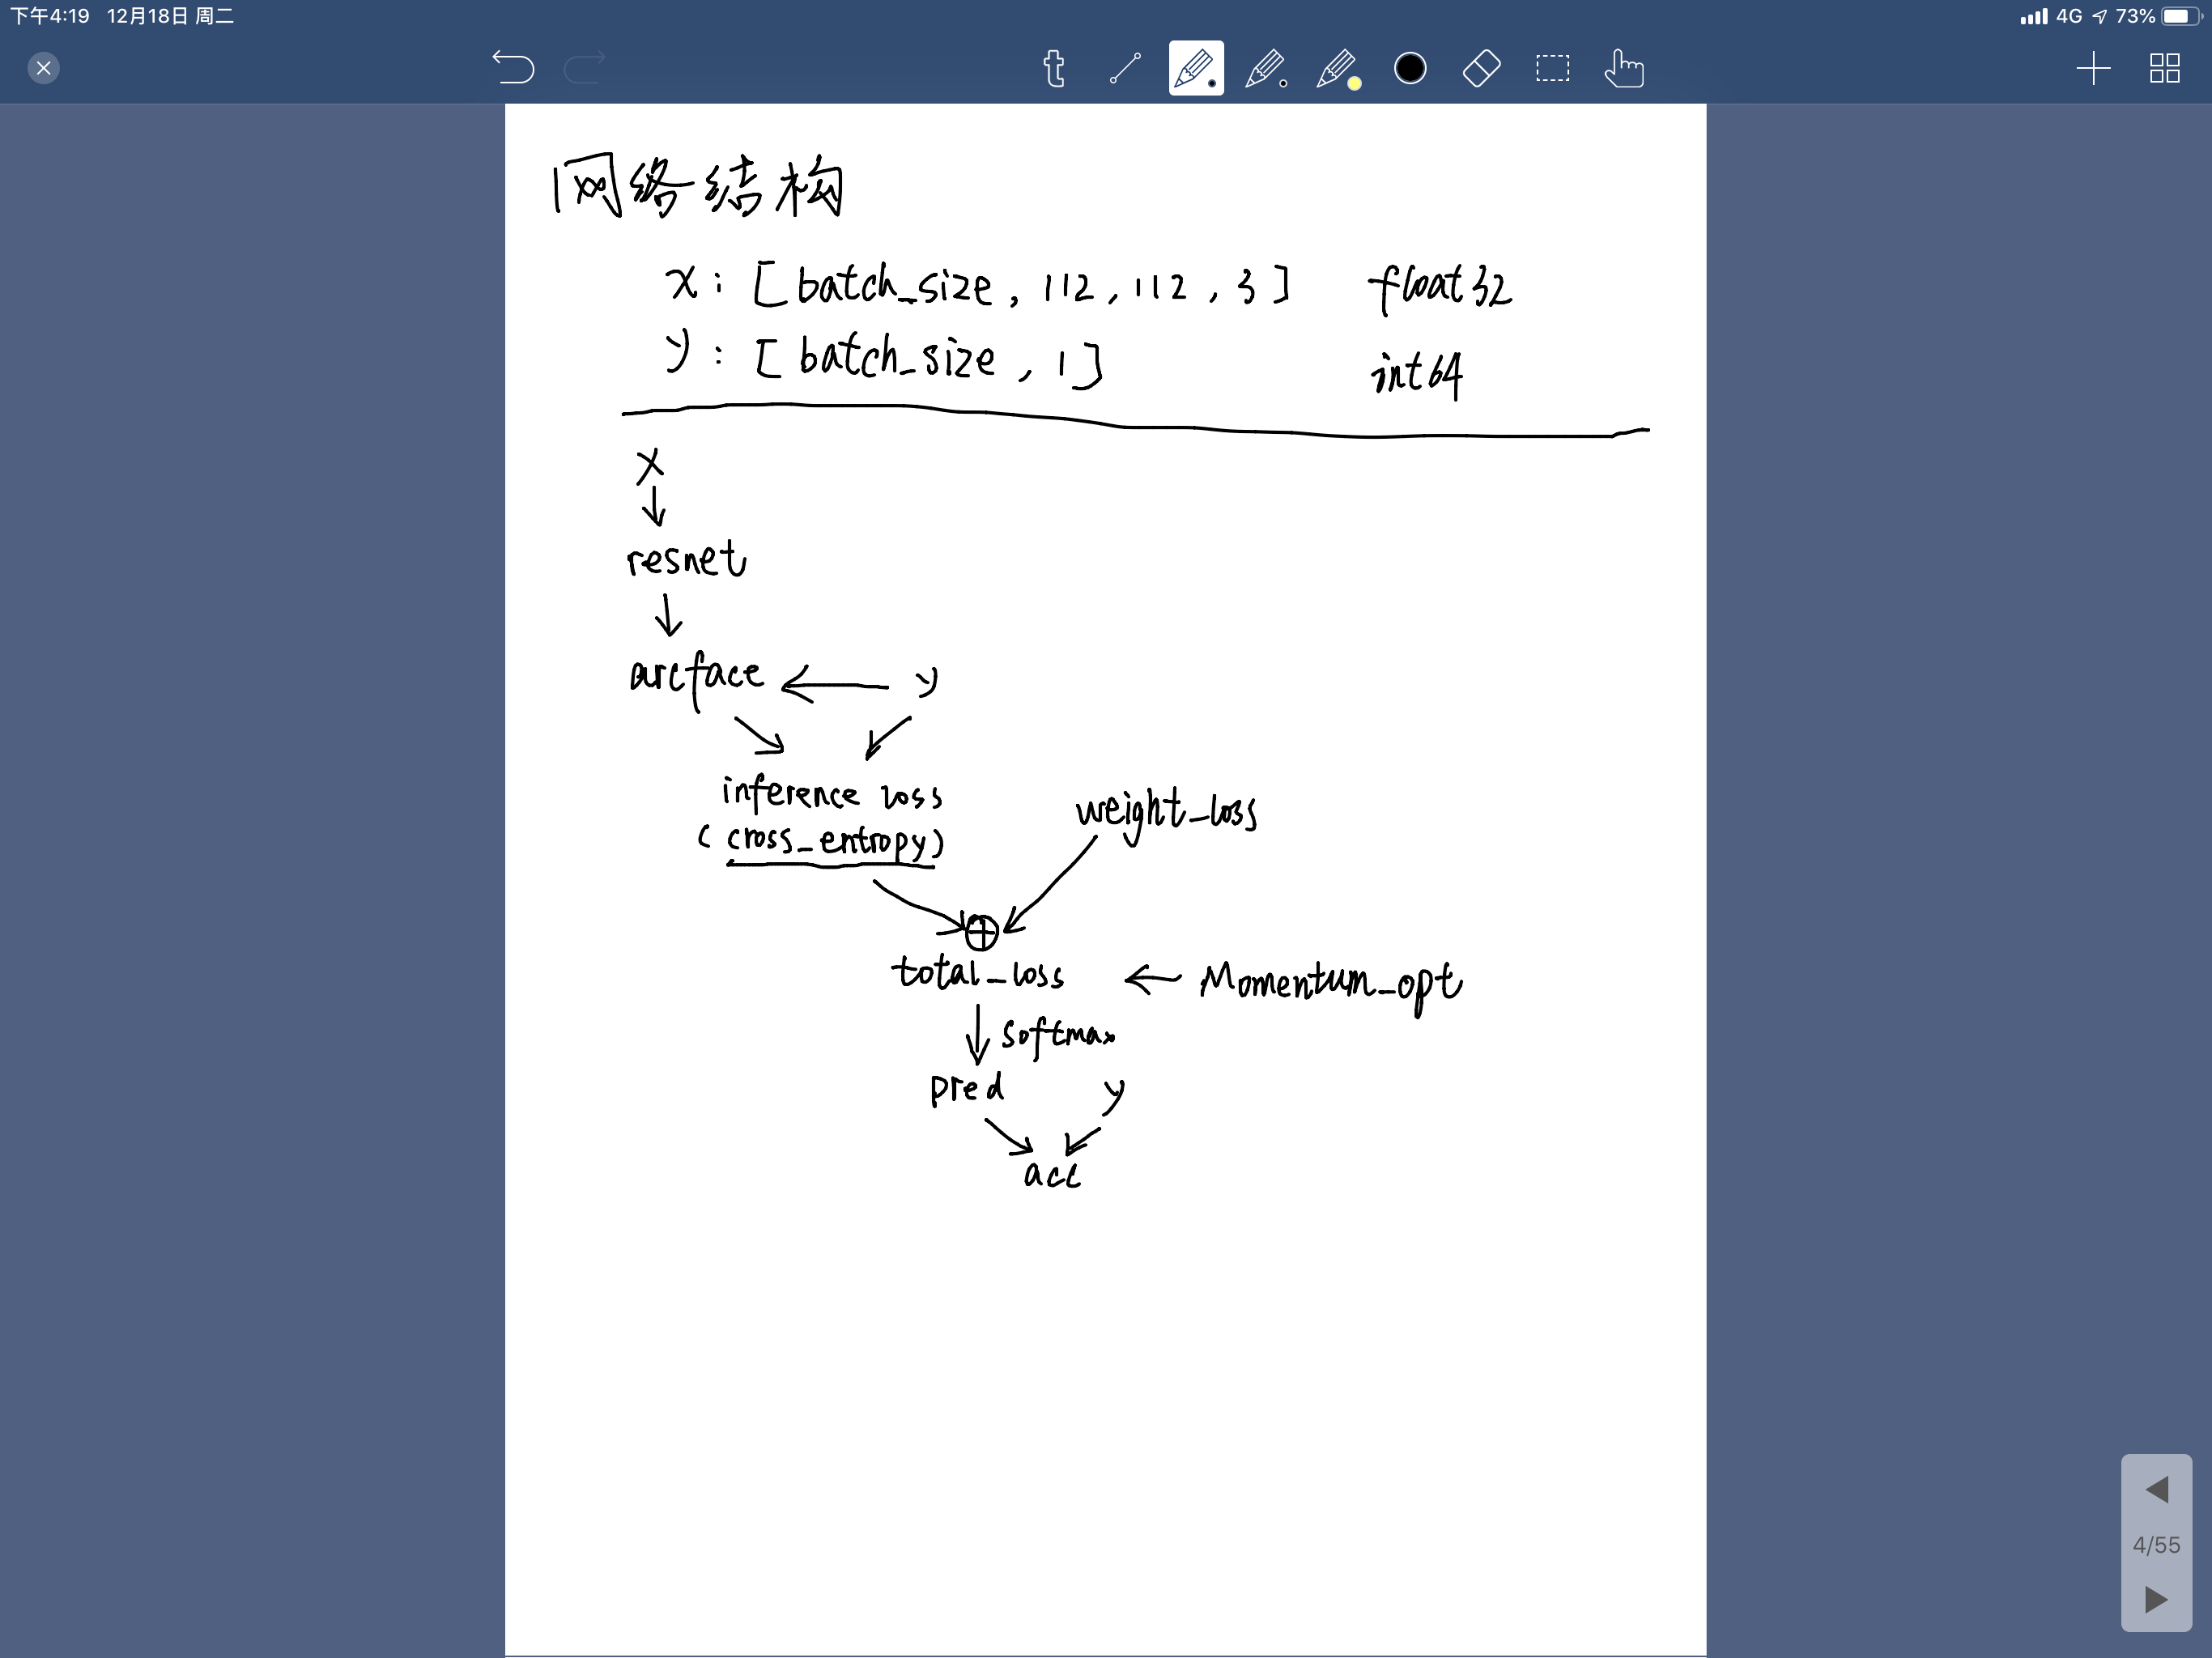 下午4:19 12月18日 周二
4G 73%
t
网络结构
x: [batch_size, 112, 112, 3] float32
y: [batch_size, 1] int64
x
resnet
arcface y
inference loss
(cross_entropy)
weight_loss
total_loss Momentum_opt
softmax
pred y
acc
4/55